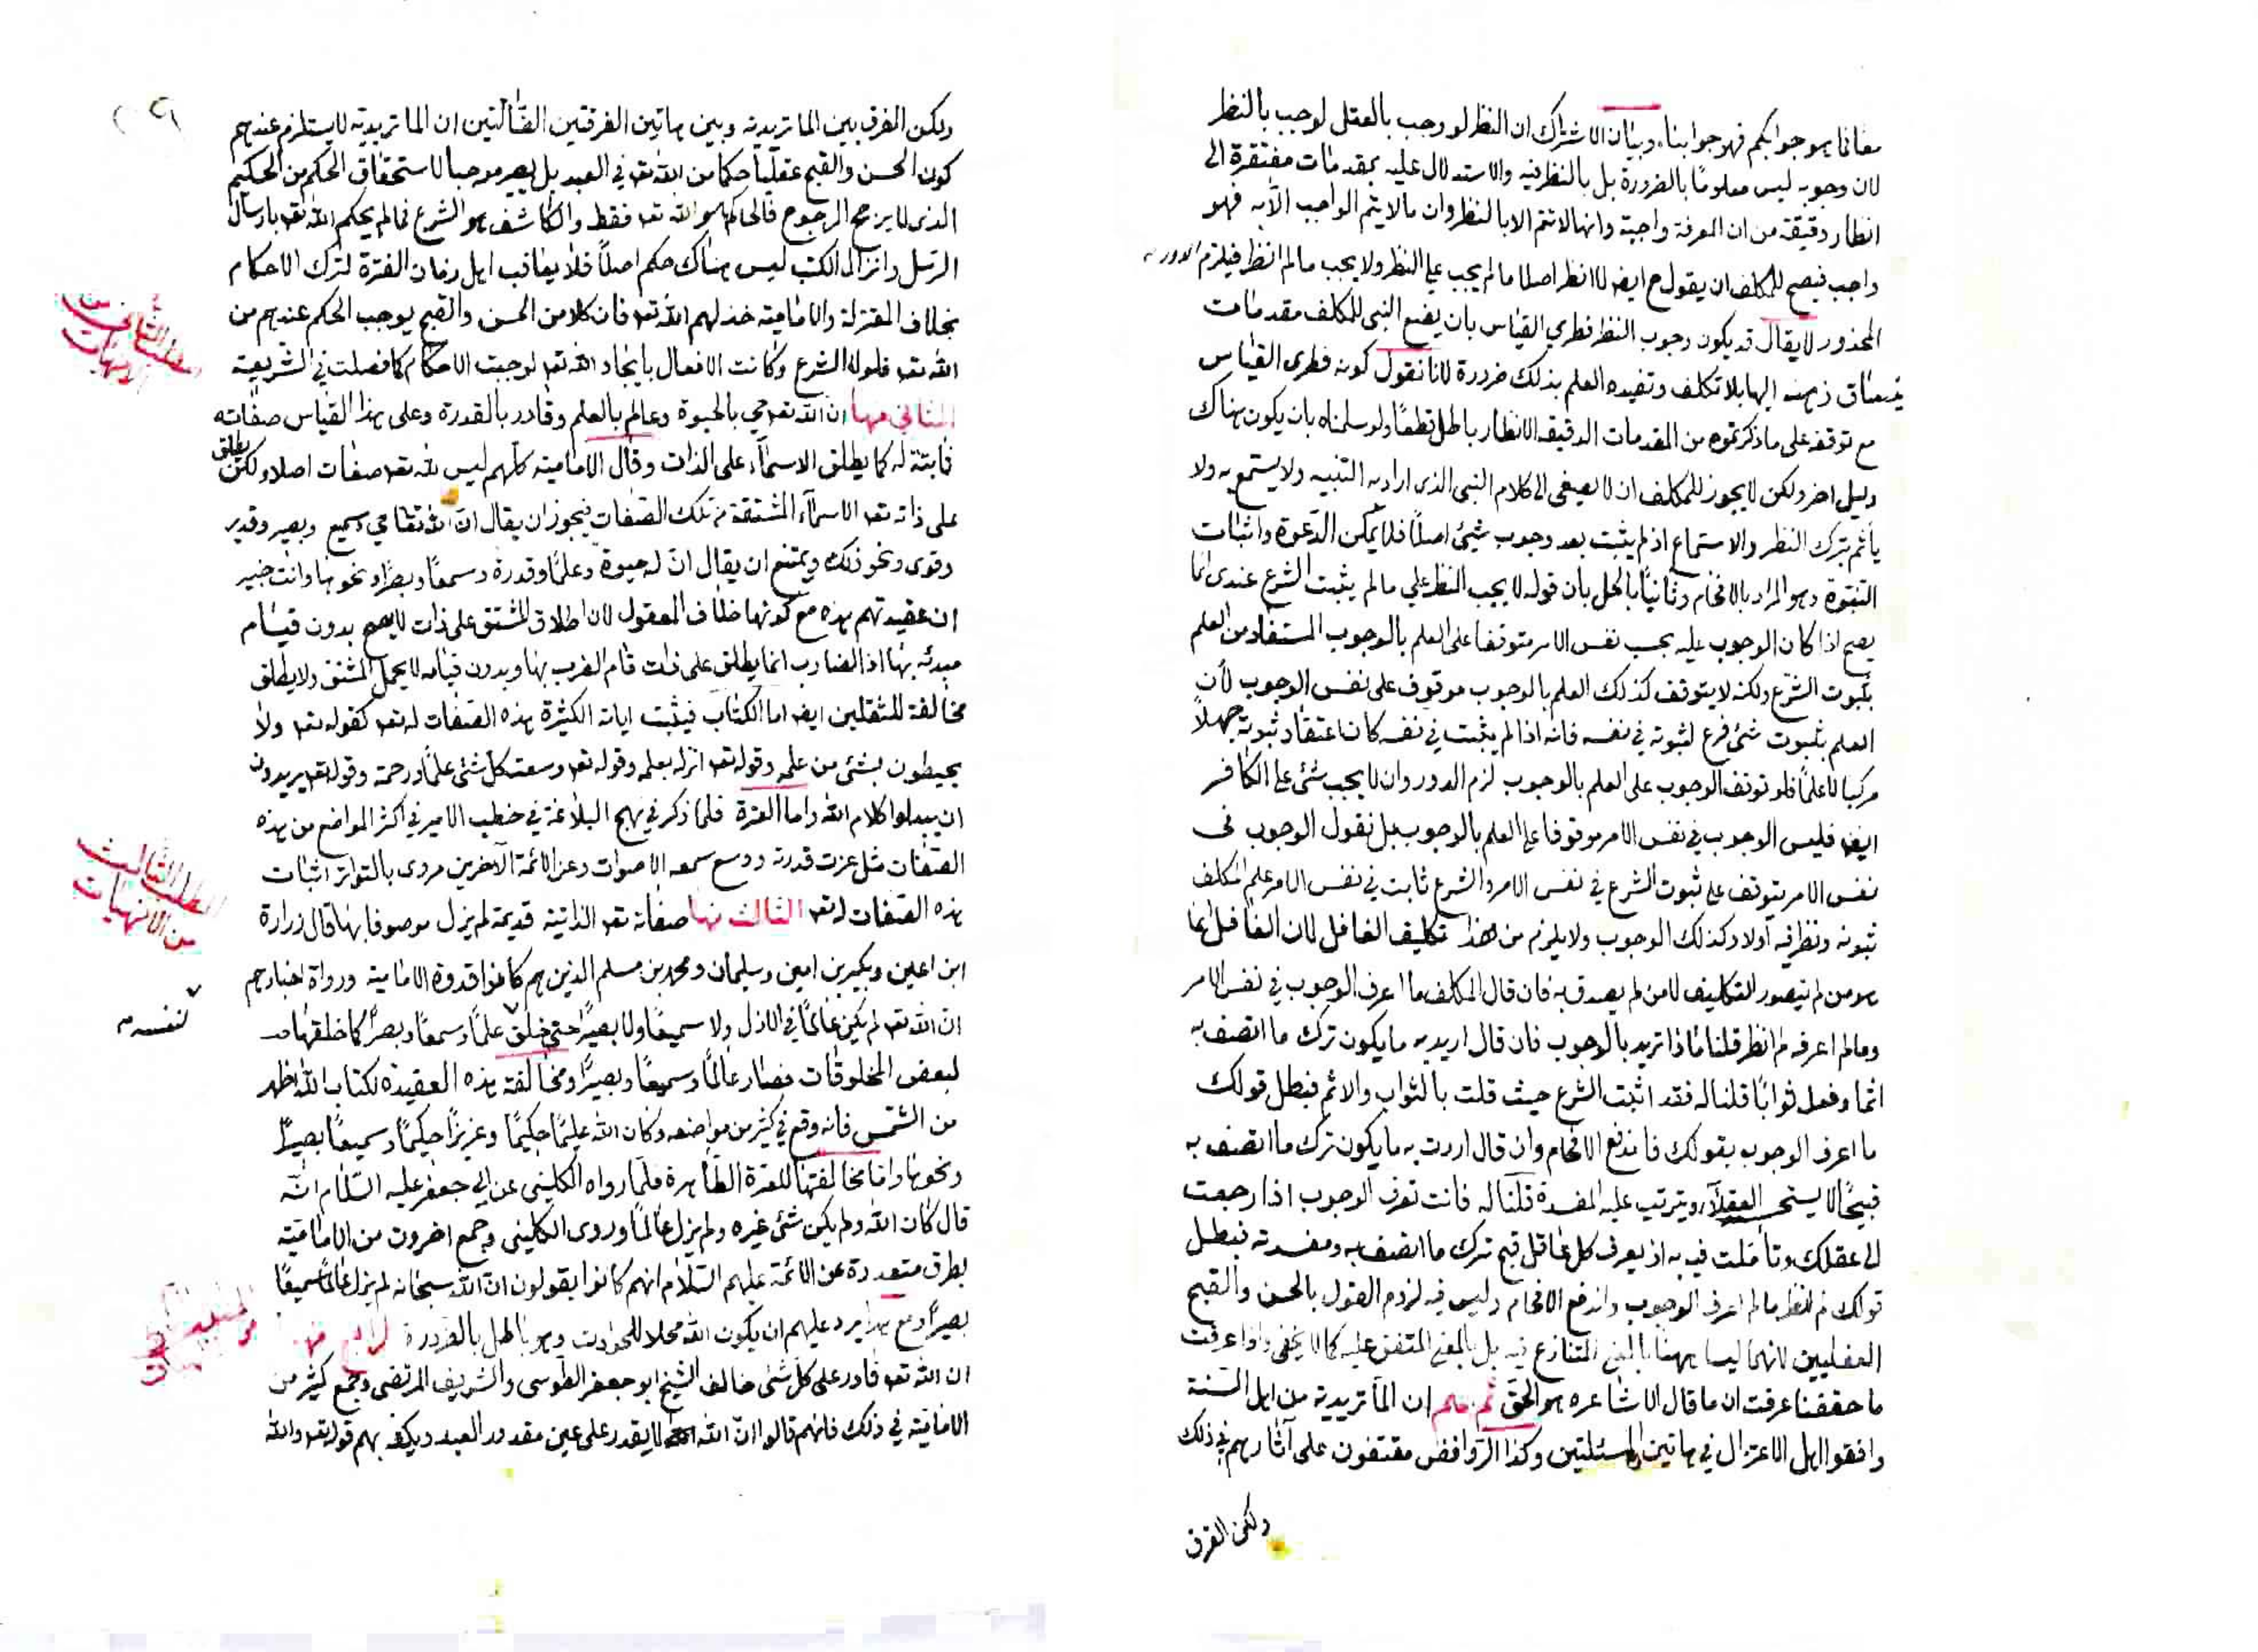 معا فما هو جوابكم فهو جوابنا وبيان الاشتراك ان النظر لو وجب بالعقل لوجب بالنظر
لان وجوبه ليس معلومًا بالضرورة بل بالنظر فيه والاستدلال عليه بمقدمات مفتقرة الى
انظار دقيقة من ان المعرفة واجبة وانها لا تتم الا بالنظر وان ما لا يتم الواجب الا به فهو
واجب فيصح للمكلف ان يقول ح ايض لا انظر اصلا ما لم يجب علي النظر ولا يجب ما لم انظر فيلزم الدور
المحذور لا يقال قد يكون وجوب النظر فطري القياس بان يضع النبي للمكلف مقدمات
ينساق ذهنه اليها بلا تكلف وتفيده العلم بذلك ضرورة لانا نقول كونه فطرى القياس
مع توقفه على ما ذكرتموه من المقدمات الدقيقة الانظار باطل قطعًا ولو سلمناه بان يكون هناك
دليل اخر ولكن لا يجوز للمكلف ان لا يصغى الى كلام النبى الذى اراد به التنبيه ولا يستمع به ولا
يأثم بترك النظر والاستماع اذ لم يثبت بعد وجوب شيئ اصلًا فلا يمكن الدعوة واثبات
النبوة وهو المراد بالافحام وثانيًا بالحل بأن قوله لا يجب النظر علي ما لم يثبت الشرع عندى انما
يصح اذا كان الوجوب عليه بحسب نفس الامر متوقفا على العلم بالوجوب المستفاد من العلم
بثبوت الشرع ولكنه لا يتوقف كذلك العلم بالوجوب موقوف على نفس الوجوب لأن
العلم بثبوت شئ فرع لثبوته في نفسه فانه اذا لم يثبت في نفسه كان اعتقاد ثبوته جهلًا
مركبا لا علمًا فلو توقف الوجوب على العلم بالوجوب لزم الدور وان لا يجب شئ على الكافر
ايض فليس الوجوب في نفس الامر موقوفا على العلم بالوجوب بل نقول الوجوب فى
نفس الامر يتوقف على ثبوت الشرع في نفس الامر والشرع ثابت في نفس الامر علم المكلف
ثبوته ونظر فيه اولا وكذلك الوجوب ولا يلزم من هذا تكليف الغافل لان الغافل انما
هو من لم يتصور التكليف لا من لم يصدق به فان قال المكلف ما اعرف الوجوب في نفس الامر
وما لم اعرفه لم انظر قلنا ماذا تريد بالوجوب فان قال اريد به ما يكون ترك ما اتصف به
اثما وفعله ثوابًا قلنا له فقد اثبت الشرع حيث قلت بالثواب والاثم فبطل قولك
ما اعرف الوجوب بقولك فاندفع الافحام وان قال اردت به ما يكون ترك ما اتصف به
قبيحًا لا يستحسنه العقلاء ويترتب عليه المفسدة قلنا له فانت تعرف الوجوب اذا رجعت
الى عقلك وتأملت فيه به اذ يعرف كل عاقل قبح ترك ما اتصف به ومفسدته فبطل
قولك لم انظر ما لم اعرف الوجوب واندفع الافحام وليس فيه لزوم القول بالحسن والقبح
العقليين لانهما ليسا ههنا بالمعنى المتنازع فيه بل بالمعنى المتفق عليه كما لا يخفى واذا عرفت
ما حققنا عرفت ان ما قال الاشاعره هو الحق ثم اعلم ان الماتريدية من اهل السنة
وافقوا اهل الاعتزال في هاتين المسئلتين وكذا الروافض مقتفون على آثارهم في ذلك
ولكن الفرق
ولكن الفرق بين الماتريدية وبين هاتين الفرقتين القائلتين ان الماتريدية لا يستلزم عندهم
كون الحسن والقبح عقليًا حكما من الله تعـ في العبد بل يصير موجبا لاستحقاق الحكم من الحكيم
الذى لا يرجح المرجوح فالحاكم هو الله تعـ فقط والكاشف هو الشرع فما لم يحكم الله تعـ بارسال
الرسل وانزال الكتب ليس هناك حكم اصلًا فلا يعاقب اهل زمان الفترة لترك الاحكام
بخلاف المعتزلة والامامية خذلهم الله تعـ فان كلا من الحسن والقبح يوجب الحكم عندهم من
الله تعـ فلولا الشرع وكانت الافعال بايجاد الله تعـ لوجبت الاحكام كما فصلت في الشريعة
المطلب الثاني من الالهيات
الثاني منها ان الله تعـ حي بالحيوة وعالم بالعلم وقادر بالقدرة وعلى هذا القياس صفاته
ثابتة له كما يطلق الاسماء على الذات وقال الامامية كلهم ليس لله تعـ صفات اصلا ولكن يطلق
على ذاته تعـ الاسماء المشتقة من تلك الصفات فيجوز ان يقال ان الله تعا حي وسميع وبصير وقدير
وقوى ونحو ذلك ويمتنع ان يقال ان له حيوة وعلمًا وقدرة وسمعًا وبصرًا ونحوها وانت خبير
ان عقيدتهم هذه مع كونها خلاف المعقول لان اطلاق المشتق على ذات لا يصح بدون قيام
مبدئه بها اذ الضارب انما يطلق على ذات قام الضرب بها وبدون قيامه لا يحمل المشتق ولا يطلق
مخالفة للثقلين ايض اما الكتاب فيثبت اياته الكثيرة هذه الصفات له تعـ كقوله تعـ ولا
يحيطون بشئ من علمه وقوله تعـ انزله بعلمه وقوله تعـ وسعت كل شئ علمًا ورحمة وقوله تعـ يريدون
ان يبدلوا كلام الله واما العترة فلما ذكر في نهج البلاغة في خطب الامير في اكثر المواضع من هذه
الصفات مثل عزت قدرته ووسع سمعه الاصوات وعن الائمة الآخرين مروى بالتواتر اثبات
المطلب الثالث من الالهيات
هذه الصفات له تعـ الثالث منها صفاته تعـ الذاتية قديمة لم يزل موصوفا بها قال زرارة
ابن اعين وبكير بن اعين وسليمان ومحمد بن مسلم الذين هم كانوا قدوة الامامية ورواة اخبارهم
ان الله تعـ لم يكن عالمًا في الازل ولا سميعًا ولا بصيرًا حتى خلق علمًا وسمعًا وبصرًا كما خلقها
لنفسه
لبعض المخلوقات فصار عالمًا وسميعًا وبصيرًا ومخالفة هذه العقيدة لكتاب الله اظهر
من الشمس فانه وقع في كثير من مواضعه وكان الله عليمًا حكيمًا وعزيزًا حكيمًا وسميعًا بصيرًا
ونحوها واما مخالفتها للعترة الطاهرة فلما رواه الكلينى عن ابي جعفر عليه السلام انه
قال كان الله ولم يكن شئ غيره ولم يزل عالمًا وروى الكلينى وجمع اخرون من الامامية
بطرق متعددة عن الائمة عليهم السلام انهم كانوا يقولون ان الله سبحانه لم يزل عالمًا سميعًا
بصيرًا ومع هذا يرد عليهم ان يكون الله محلا للحوادث وهو باطل بالضرورة الرابع منها
ان الله تعـ قادر على كل شئ خالف الشيخ ابو جعفر الطوسى والشريف المرتضى وجمع كثير من
الامامية في ذلك فانهم قالوا ان الله لا يقدر على عين مقدور العبد ويكفى بهم قوله تعـ والله